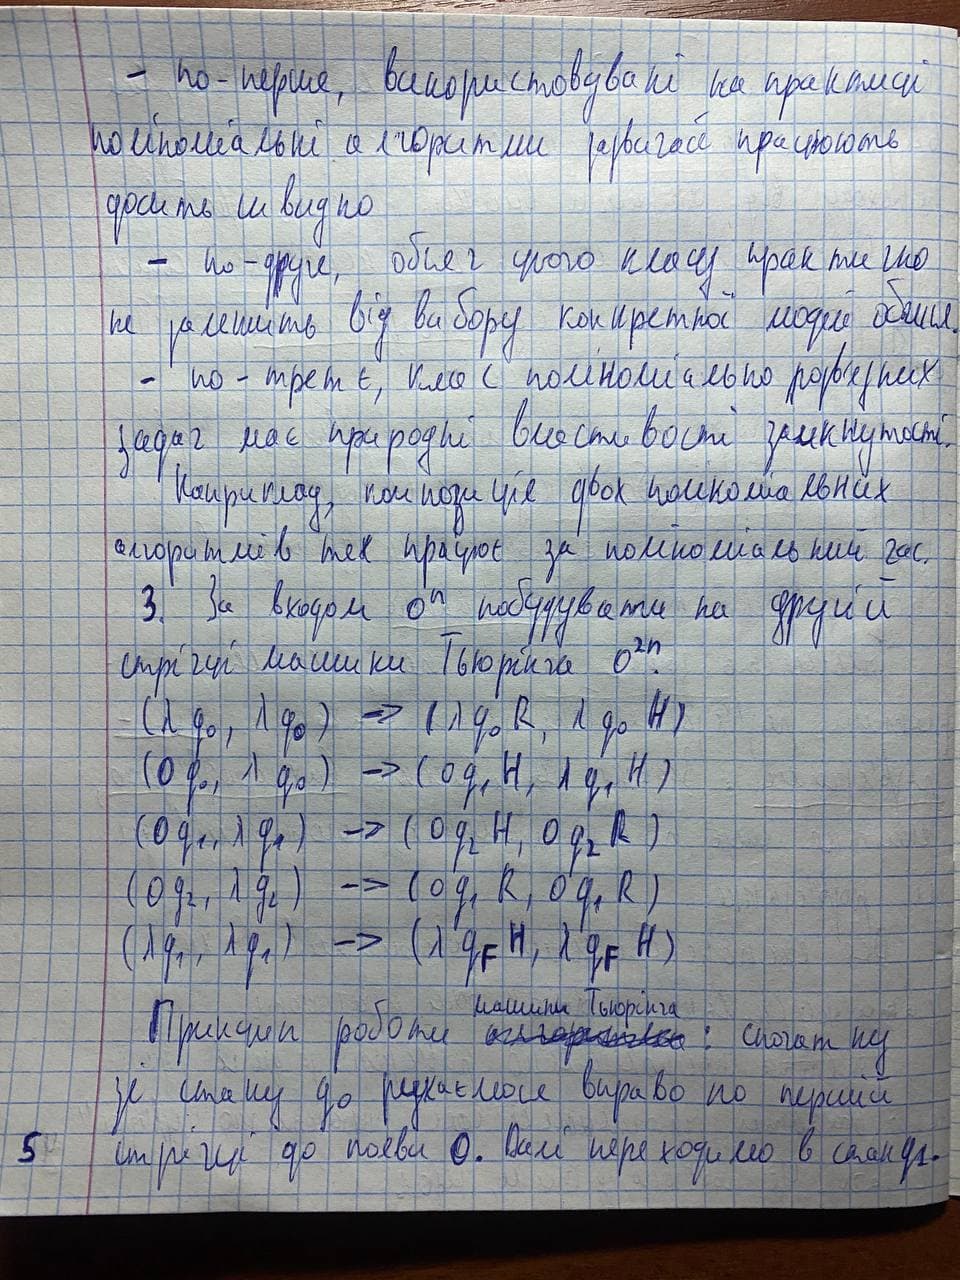 - по-перше, використовувані на практиці
поліноміальні алгоритми зазвичай працюють
досить швидко
- по-друге, обсяг цього класу практично
не залежить від вибору конкретної моделі обчисл.
- по-третє, клас поліноміально розв'язних
задач має природні властивості замкнутості.
Наприклад, композиція двох поліноміальних
алгоритмів теж працює за поліноміальний час.
3. За входом 0ⁿ побудувати на другій
стрічці машини Тьюрінга 0²ⁿ.
(λ q₀, λ q₀) -> (λ q₀ R, λ q₀ H)
(0 q₀, λ q₀) -> (0 q₁ H, λ q₁ H)
(0 q₁, λ q₁) -> (0 q₂ H, 0 q₂ R)
(0 q₂, λ q₂) -> (0 q₁ R, 0 q₁ R)
(λ q₁, λ q₁) -> (λ q_F H, λ q_F H)
Принцип роботи машини Тьюрінга : спочатку
зі стану q₀ рухаємося вправо по першій
5 стрічці до появи 0. Далі переходимо в стан q₁.